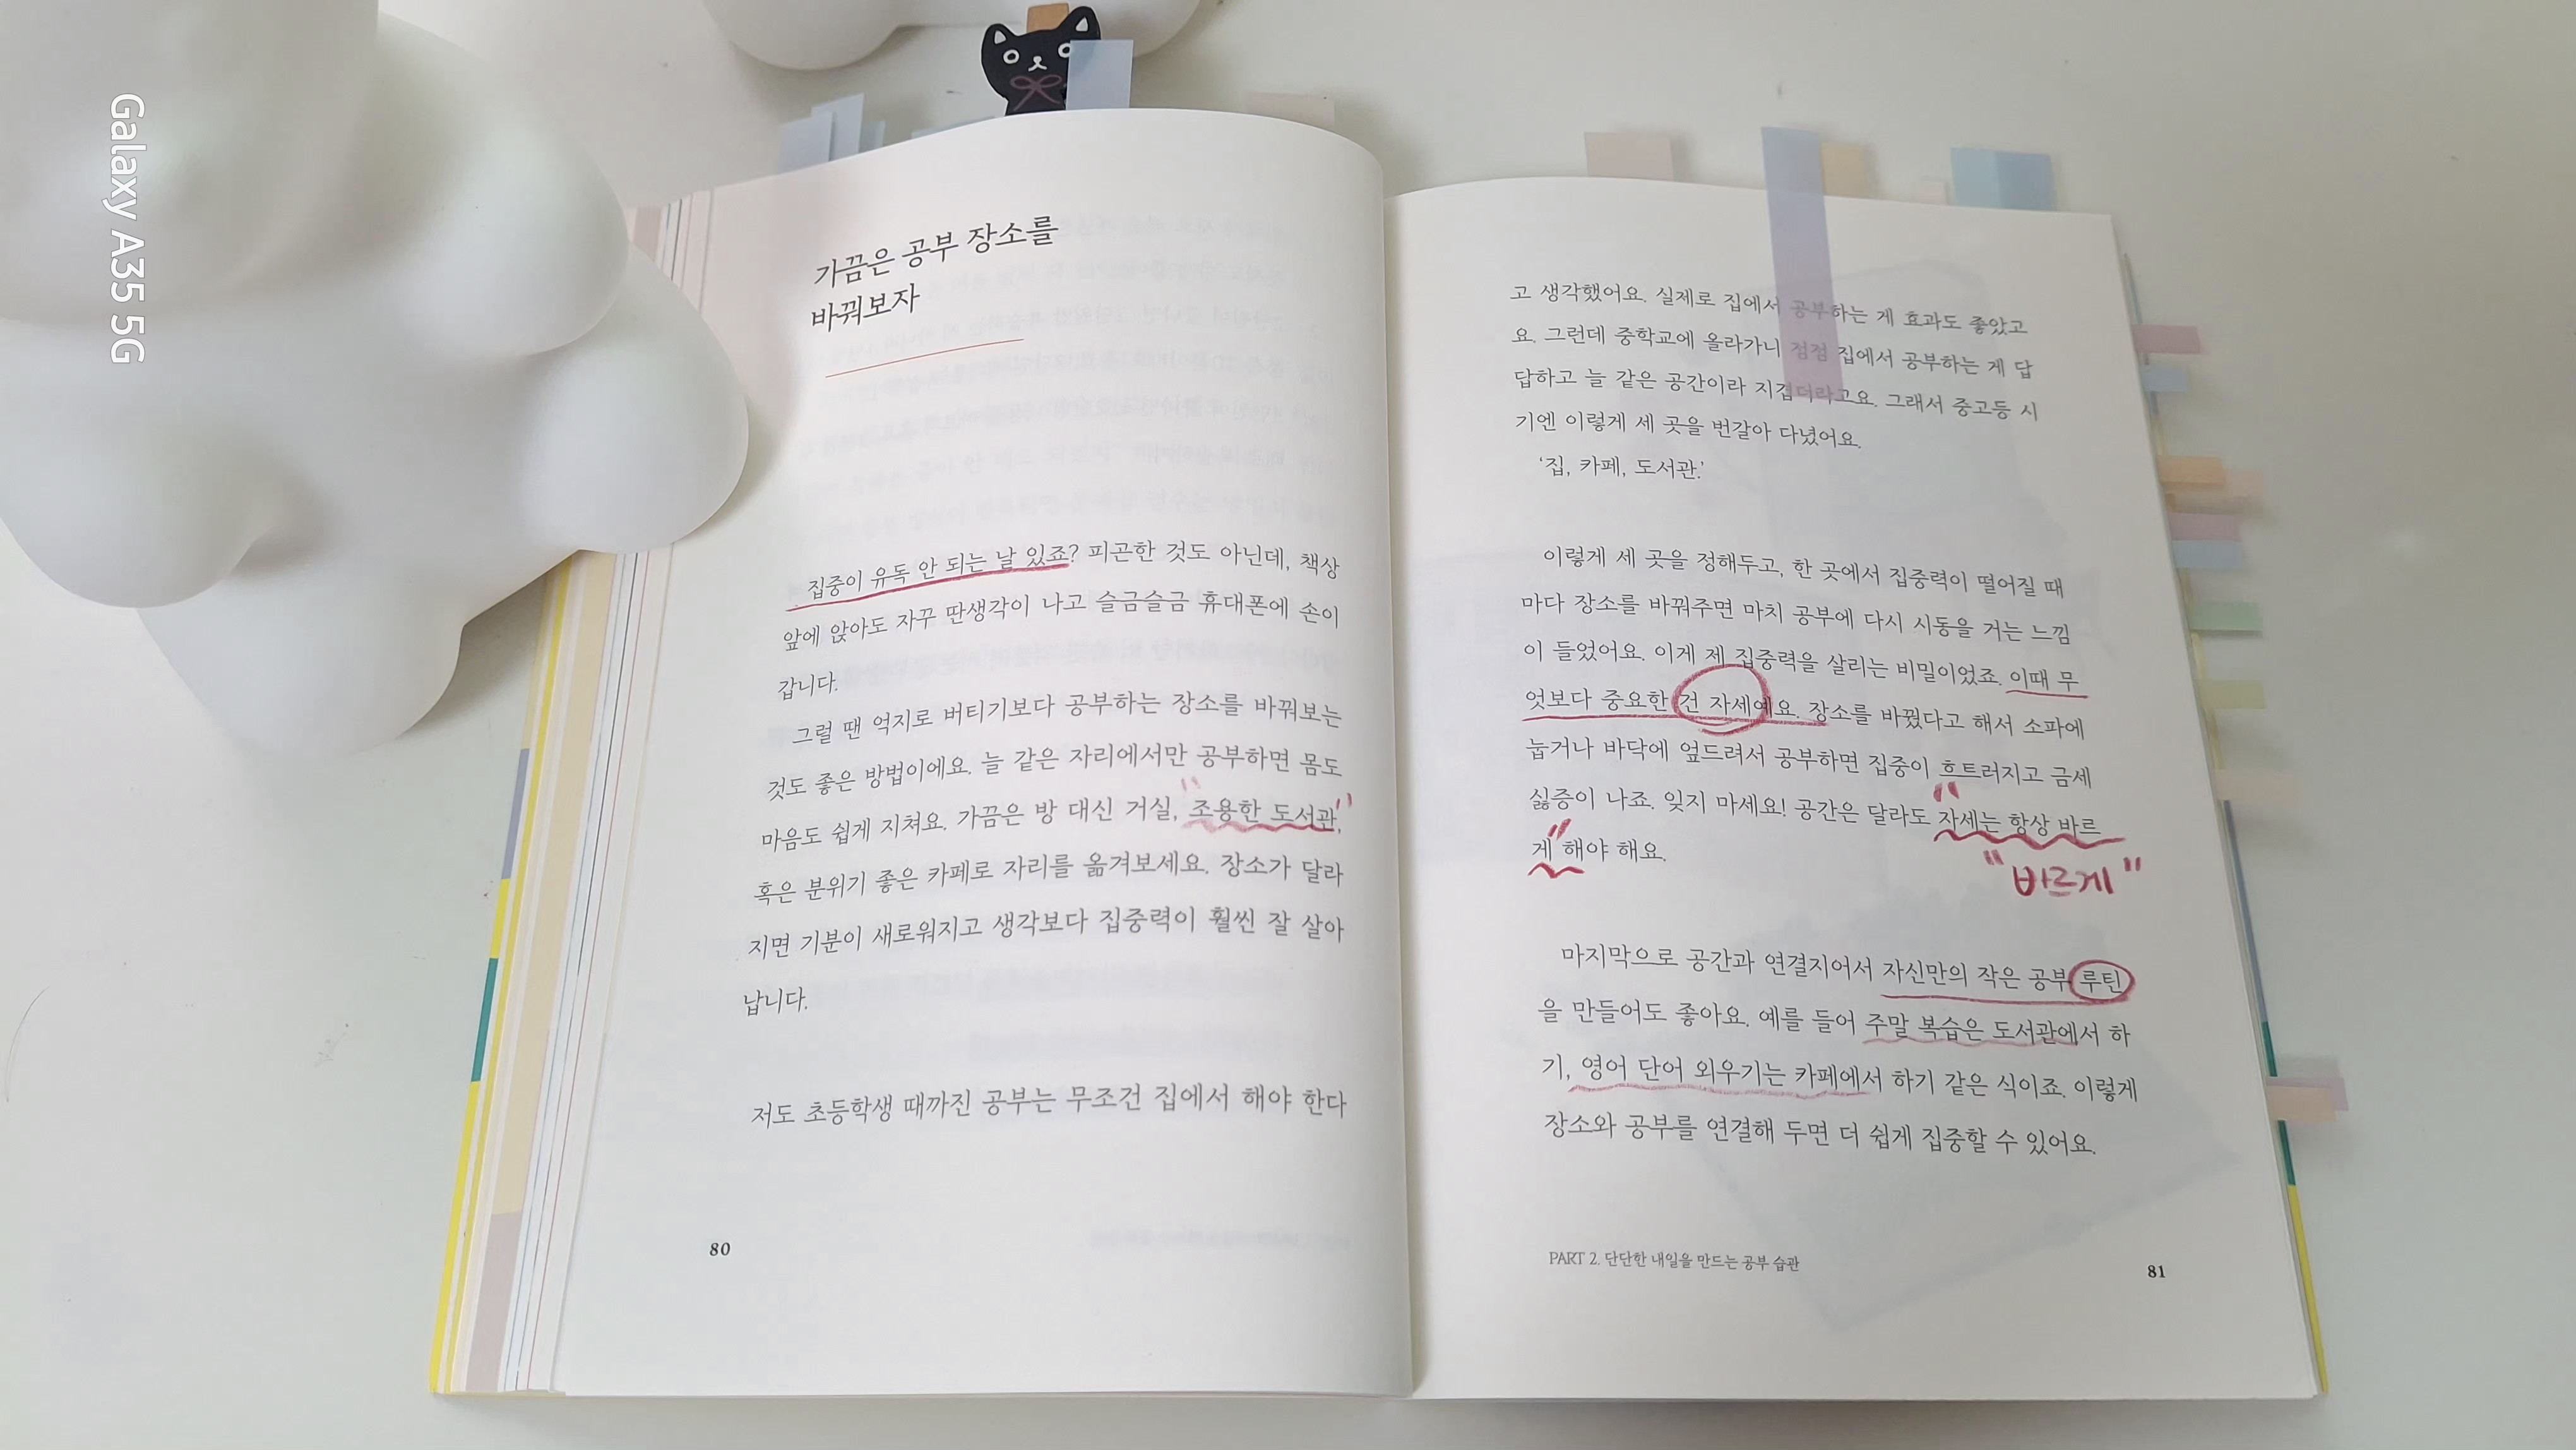 Galaxy A35 5G
가끔은 공부 장소를
바꿔보자
집중이 유독 안 되는 날 있죠? 피곤한 것도 아닌데, 책상
앞에 앉아도 자꾸 딴생각이 나고 슬금슬금 휴대폰에 손이
갑니다.
그럴 땐 억지로 버티기보다 공부하는 장소를 바꿔보는
것도 좋은 방법이에요. 늘 같은 자리에서만 공부하면 몸도
마음도 쉽게 지쳐요. 가끔은 방 대신 거실, "조용한 도서관,"
혹은 분위기 좋은 카페로 자리를 옮겨보세요. 장소가 달라
지면 기분이 새로워지고 생각보다 집중력이 훨씬 잘 살아
납니다.
저도 초등학생 때까진 공부는 무조건 집에서 해야 한다
80
고 생각했어요. 실제로 집에서 공부하는 게 효과도 좋았고
요. 그런데 중학교에 올라가니 점점 집에서 공부하는 게 답
답하고 늘 같은 공간이라 지겹더라고요. 그래서 중고등 시
기엔 이렇게 세 곳을 번갈아 다녔어요.
'집, 카페, 도서관.'
이렇게 세 곳을 정해두고, 한 곳에서 집중력이 떨어질 때
마다 장소를 바꿔주면 마치 공부에 다시 시동을 거는 느낌
이 들었어요. 이게 제 집중력을 살리는 비밀이었죠. 이때 무
엇보다 중요한 건 자세예요. 장소를 바꿨다고 해서 소파에
눕거나 바닥에 엎드려서 공부하면 집중이 흐트러지고 금세
싫증이 나죠. 잊지 마세요! 공간은 달라도 "자세는 항상 바르
게" 해야 해요.
"바르게"
마지막으로 공간과 연결지어서 자신만의 작은 공부 루틴
을 만들어도 좋아요. 예를 들어 주말 복습은 도서관에서 하
기, 영어 단어 외우기는 카페에서 하기 같은 식이죠. 이렇게
장소와 공부를 연결해 두면 더 쉽게 집중할 수 있어요.
PART 2. 단단한 내일을 만드는 공부 습관
81